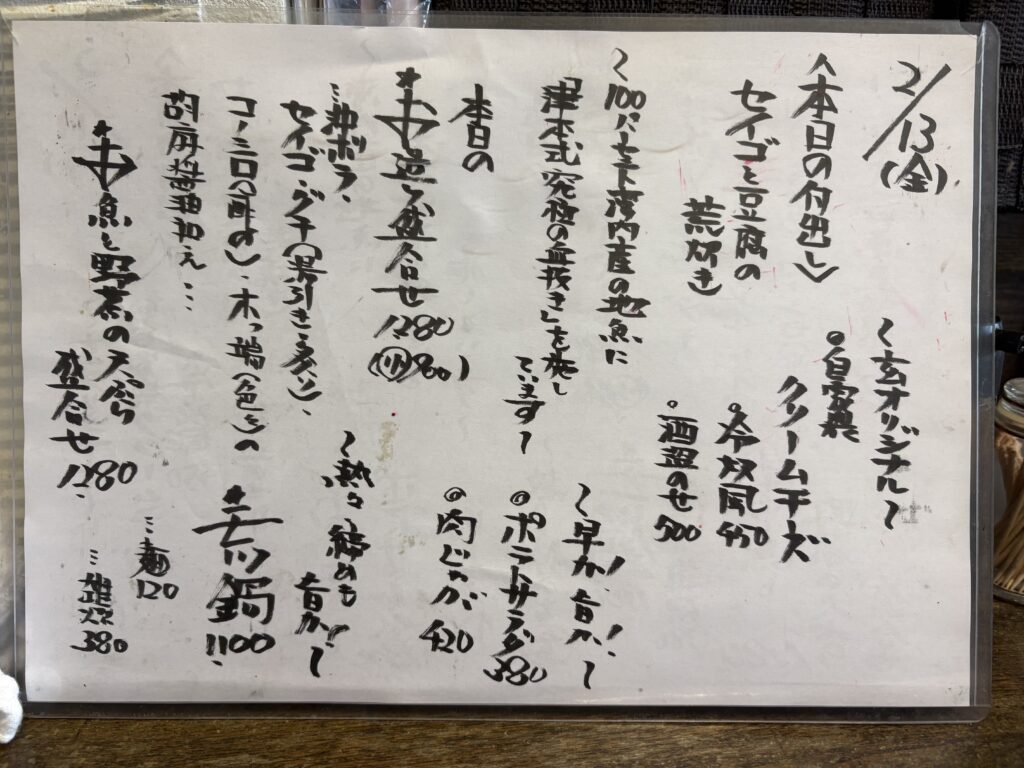 2/13(金)
〈本日の付出し〉
セイゴと豆腐の
荒炊き
〜玄オリジナル〜
◎自家製
クリームチーズ
◎冷奴風 450
◎酒盗のせ 500
〜100パーセント湾内産の地魚に
「津本式 究極の血抜き」を施し
ています〜
本日の
造り盛合せ 1280
980)
…沖ボラ、
セイゴ・グチ(湯引き・炙り)、
コノシロ(酢〆)・木っ端(色々)の
胡麻醤油和え…
魚と野菜の天ぷら
盛合せ 1280
〜早か!旨か!〜
◎ポテトサラダ 380
◎肉じゃが 420
〜熱々 締めも
旨か!〜
鍋 1100
…麺 120
…雑炊 380